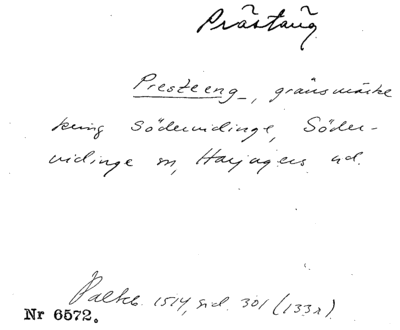 Prästäng
Presteeng, gränsmärke
kring Södervidinge, Söder-
vidinge sn, Harjagers hd.
Palteb. 1514, sid. 301 (133r).
Nr 6572.